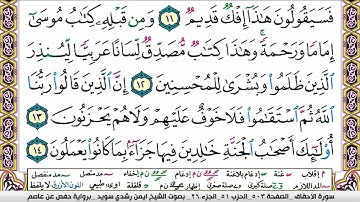 فَسَيَقُولُونَ هَٰذَا إِفْكٌ قَدِيمٌ ١١ وَمِن قَبْلِهِ كِتَابُ مُوسَىٰ
إِمَامًا وَرَحْمَةً وَهَٰذَا كِتَابٌ مُّصَدِّقٌ لِّسَانًا عَرَبِيًّا لِّيُنذِرَ
الَّذِينَ ظَلَمُوا وَبُشْرَىٰ لِلْمُحْسِنِينَ ١٢ إِنَّ الَّذِينَ قَالُوا رَبُّنَا
اللَّهُ ثُمَّ اسْتَقَامُوا فَلَا خَوْفٌ عَلَيْهِمْ وَلَا هُمْ يَحْزَنُونَ
١٣ أُولَٰئِكَ أَصْحَابُ الْجَنَّةِ خَالِدِينَ فِيهَا جَزَاءً بِمَا كَانُوا يَعْمَلُونَ ١٤
سورة الأحقاف الصفحة ٥٠٣ الحزب ٥١ الجزء ٢٦ بصوت الشيخ أيمن رشدي سويد - برواية حفص عن عاصم